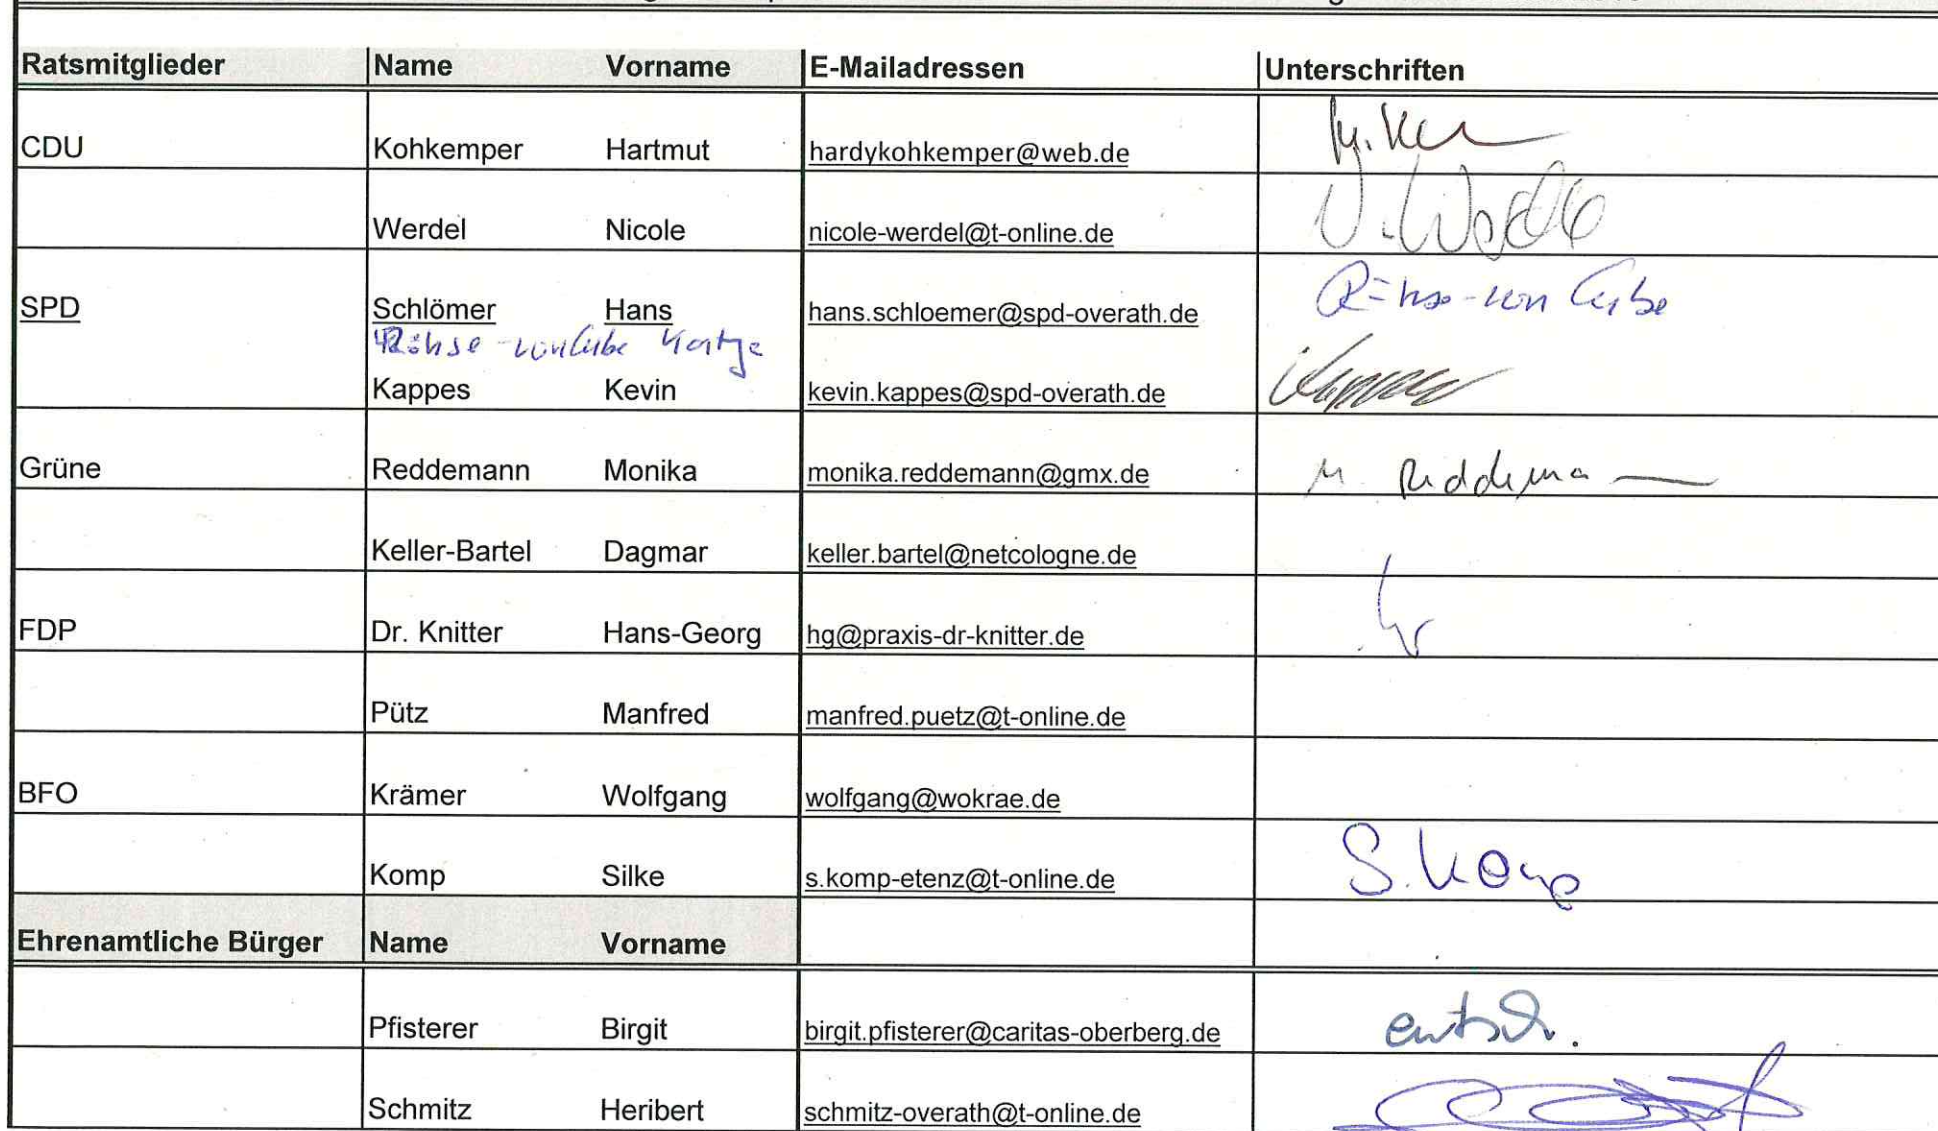 Ratsmitglieder Name Vorname E-Mailadressen Unterschriften
CDU Kohkemper Hartmut hardykohkemper@web.de
Werdel Nicole nicole-werdel@t-online.de N. Werdel
SPD Schlömer Hans hans.schloemer@spd-overath.de Röhse-von Cube
Röhse-von Cube Kartje
Kappes Kevin kevin.kappes@spd-overath.de Kappes
Grüne Reddemann Monika monika.reddemann@gmx.de M. Reddemann
Keller-Bartel Dagmar keller.bartel@netcologne.de
FDP Dr. Knitter Hans-Georg hg@praxis-dr-knitter.de
Pütz Manfred manfred.puetz@t-online.de
BFO Krämer Wolfgang wolfgang@wokrae.de
Komp Silke s.komp-etenz@t-online.de S. Komp
Ehrenamtliche Bürger Name Vorname
Pfisterer Birgit birgit.pfisterer@caritas-oberberg.de entsch.
Schmitz Heribert schmitz-overath@t-online.de